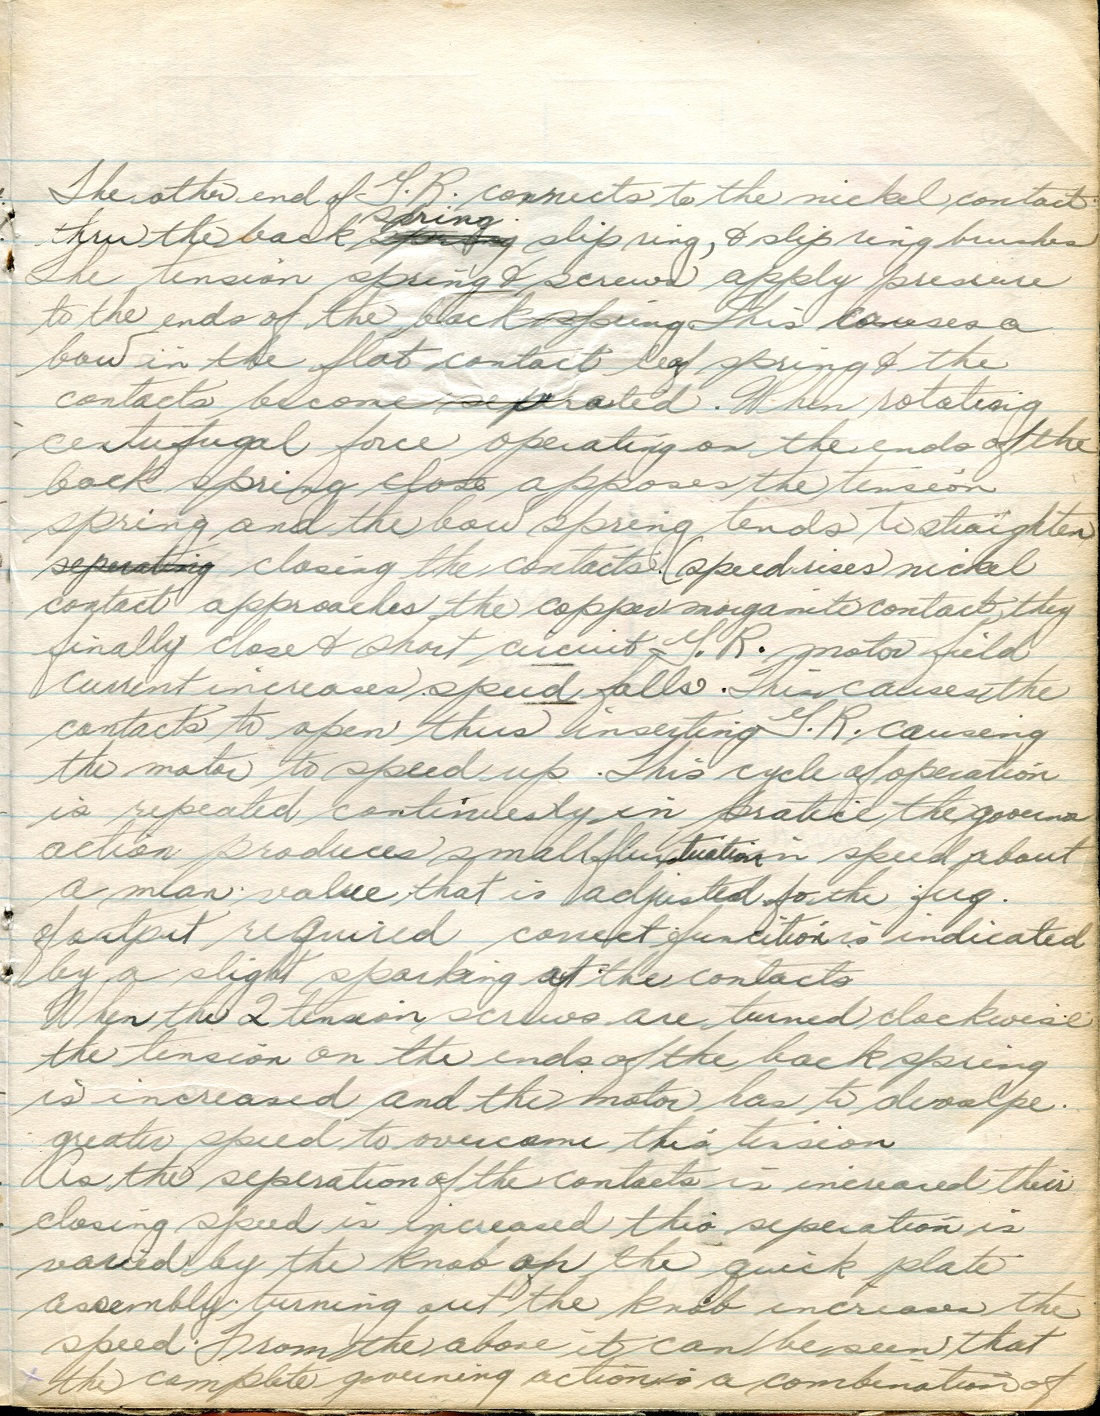 The other end of G.R. connects to the nickel contact
spring
thru the back slip ring, & slip ring brushes
The tension spring & screws apply pressure
to the ends of the back spring This causes a
bow in the flat contact leaf spring & the
contacts become seperated. When rotating
centufugal force operating on the ends of the
back spring close apposes the tension
spring and the bow spring tends to straighten
seperating closing the contacts. (speed rises nickel
contact approaches the copper morganite contact, they
finally close & short circuit G.R. motor field
current increases speed falls. This causes the
contacts to open thus inserting G.R. causeing
the motor to speed up. This cycle of operation
is repeated continuesly in pratice the governor
action produces small fluctuation in speed about
a mean value that is adjusted for the freq.
of output required correct function is indicated
by a slight sparking at the contacts
When the 2 tension screws are turned clockwise
the tension on the ends of the back spring
is increased and the motor has to devoalpe
greater speed to overcome this tension
As the seperation of the contacts is increased their
closing speed is increased this seperation is
varied by the knob on the quick plate
assembly. turning out the knob increases the
speed. From the above it can be seen that
the complete governing action is a combination of